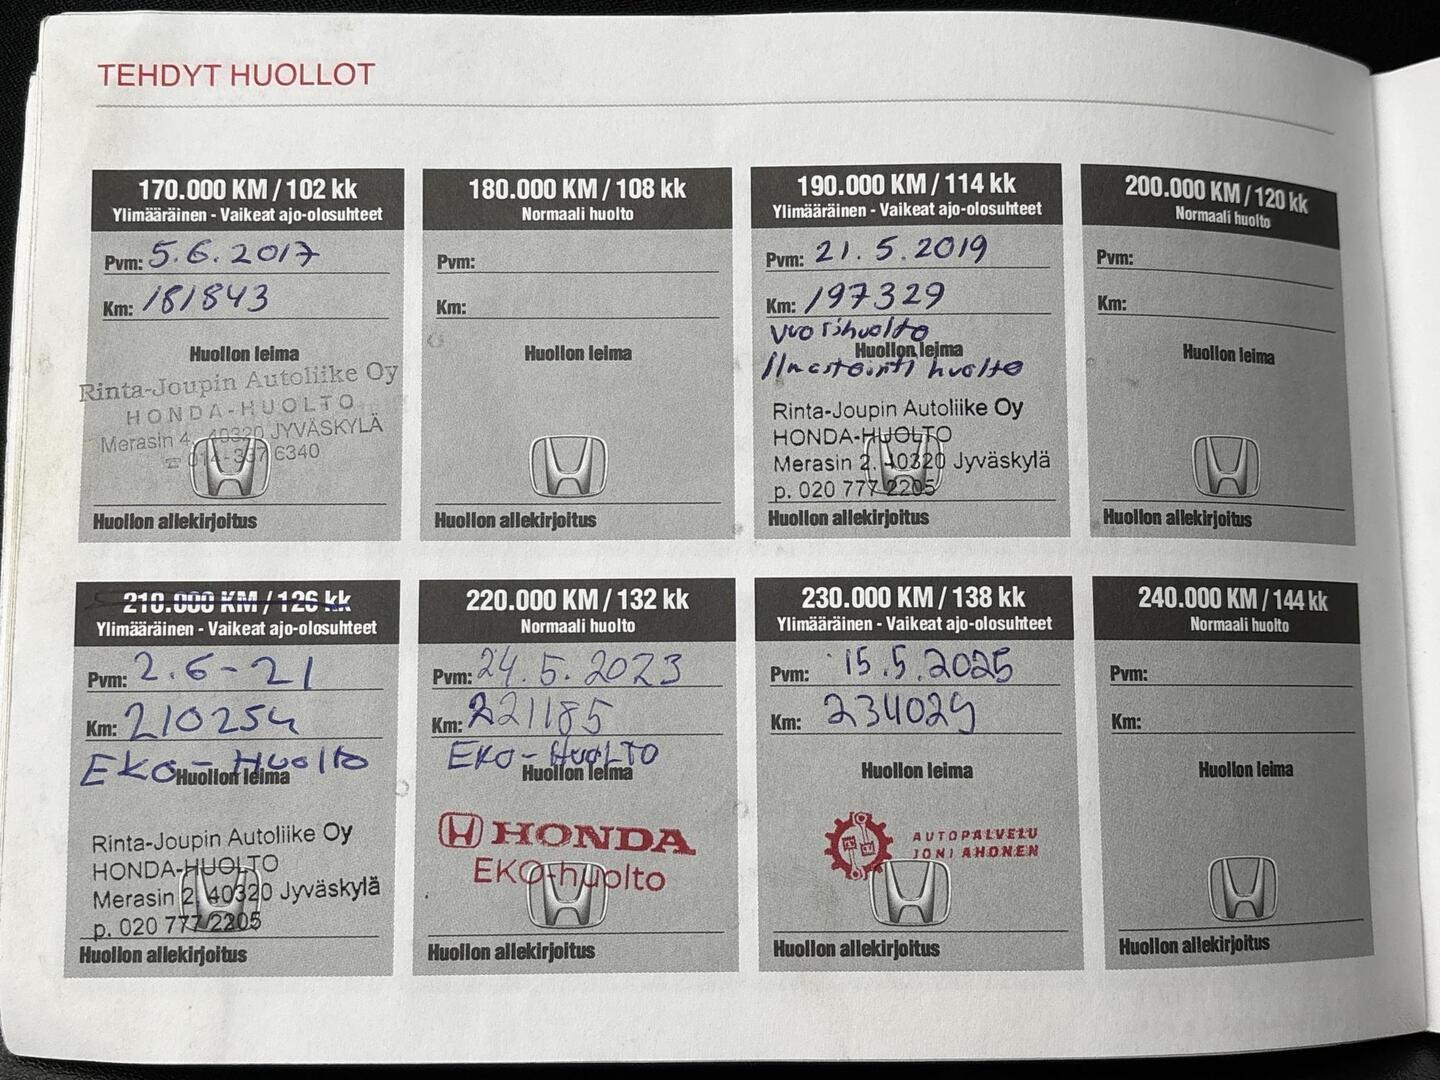 TEHDYT HUOLLOT
170.000 KM / 102 kk
Ylimääräinen - Vaikeat ajo-olosuhteet
Pvm: 5.6.2017
Km: 181843
Huollon leima
Rinta-Joupin Autoliike Oy
HONDA-HUOLTO
Merasin 4, 40320 JYVÄSKYLÄ
☎ 014-337 6340
Huollon allekirjoitus
180.000 KM / 108 kk
Normaali huolto
Pvm:
Km:
Huollon leima
Huollon allekirjoitus
190.000 KM / 114 kk
Ylimääräinen - Vaikeat ajo-olosuhteet
Pvm: 21.5.2019
Km: 197329
vuosihuolto
Huollon leima
ilmastointi huolto
Rinta-Joupin Autoliike Oy
HONDA-HUOLTO
Merasin 2, 40320 Jyväskylä
p. 020 777 2205
Huollon allekirjoitus
200.000 KM / 120 kk
Normaali huolto
Pvm:
Km:
Huollon leima
Huollon allekirjoitus
210.000 KM / 126 kk
Ylimääräinen - Vaikeat ajo-olosuhteet
Pvm: 2.6-21
Km: 210254
EKo-Huolto
Huollon leima
Rinta-Joupin Autoliike Oy
HONDA-HUOLTO
Merasin 2, 40320 Jyväskylä
p. 020 777 2205
Huollon allekirjoitus
220.000 KM / 132 kk
Normaali huolto
Pvm: 24.5.2023
Km: 221185
EKO-HUOLTO
Huollon leima
HONDA
EKO-huolto
Huollon allekirjoitus
230.000 KM / 138 kk
Ylimääräinen - Vaikeat ajo-olosuhteet
Pvm: 15.5.2025
Km: 234029
Huollon leima
AUTOPALVELU
JONI AHONEN
Huollon allekirjoitus
240.000 KM / 144 kk
Normaali huolto
Pvm:
Km:
Huollon leima
Huollon allekirjoitus